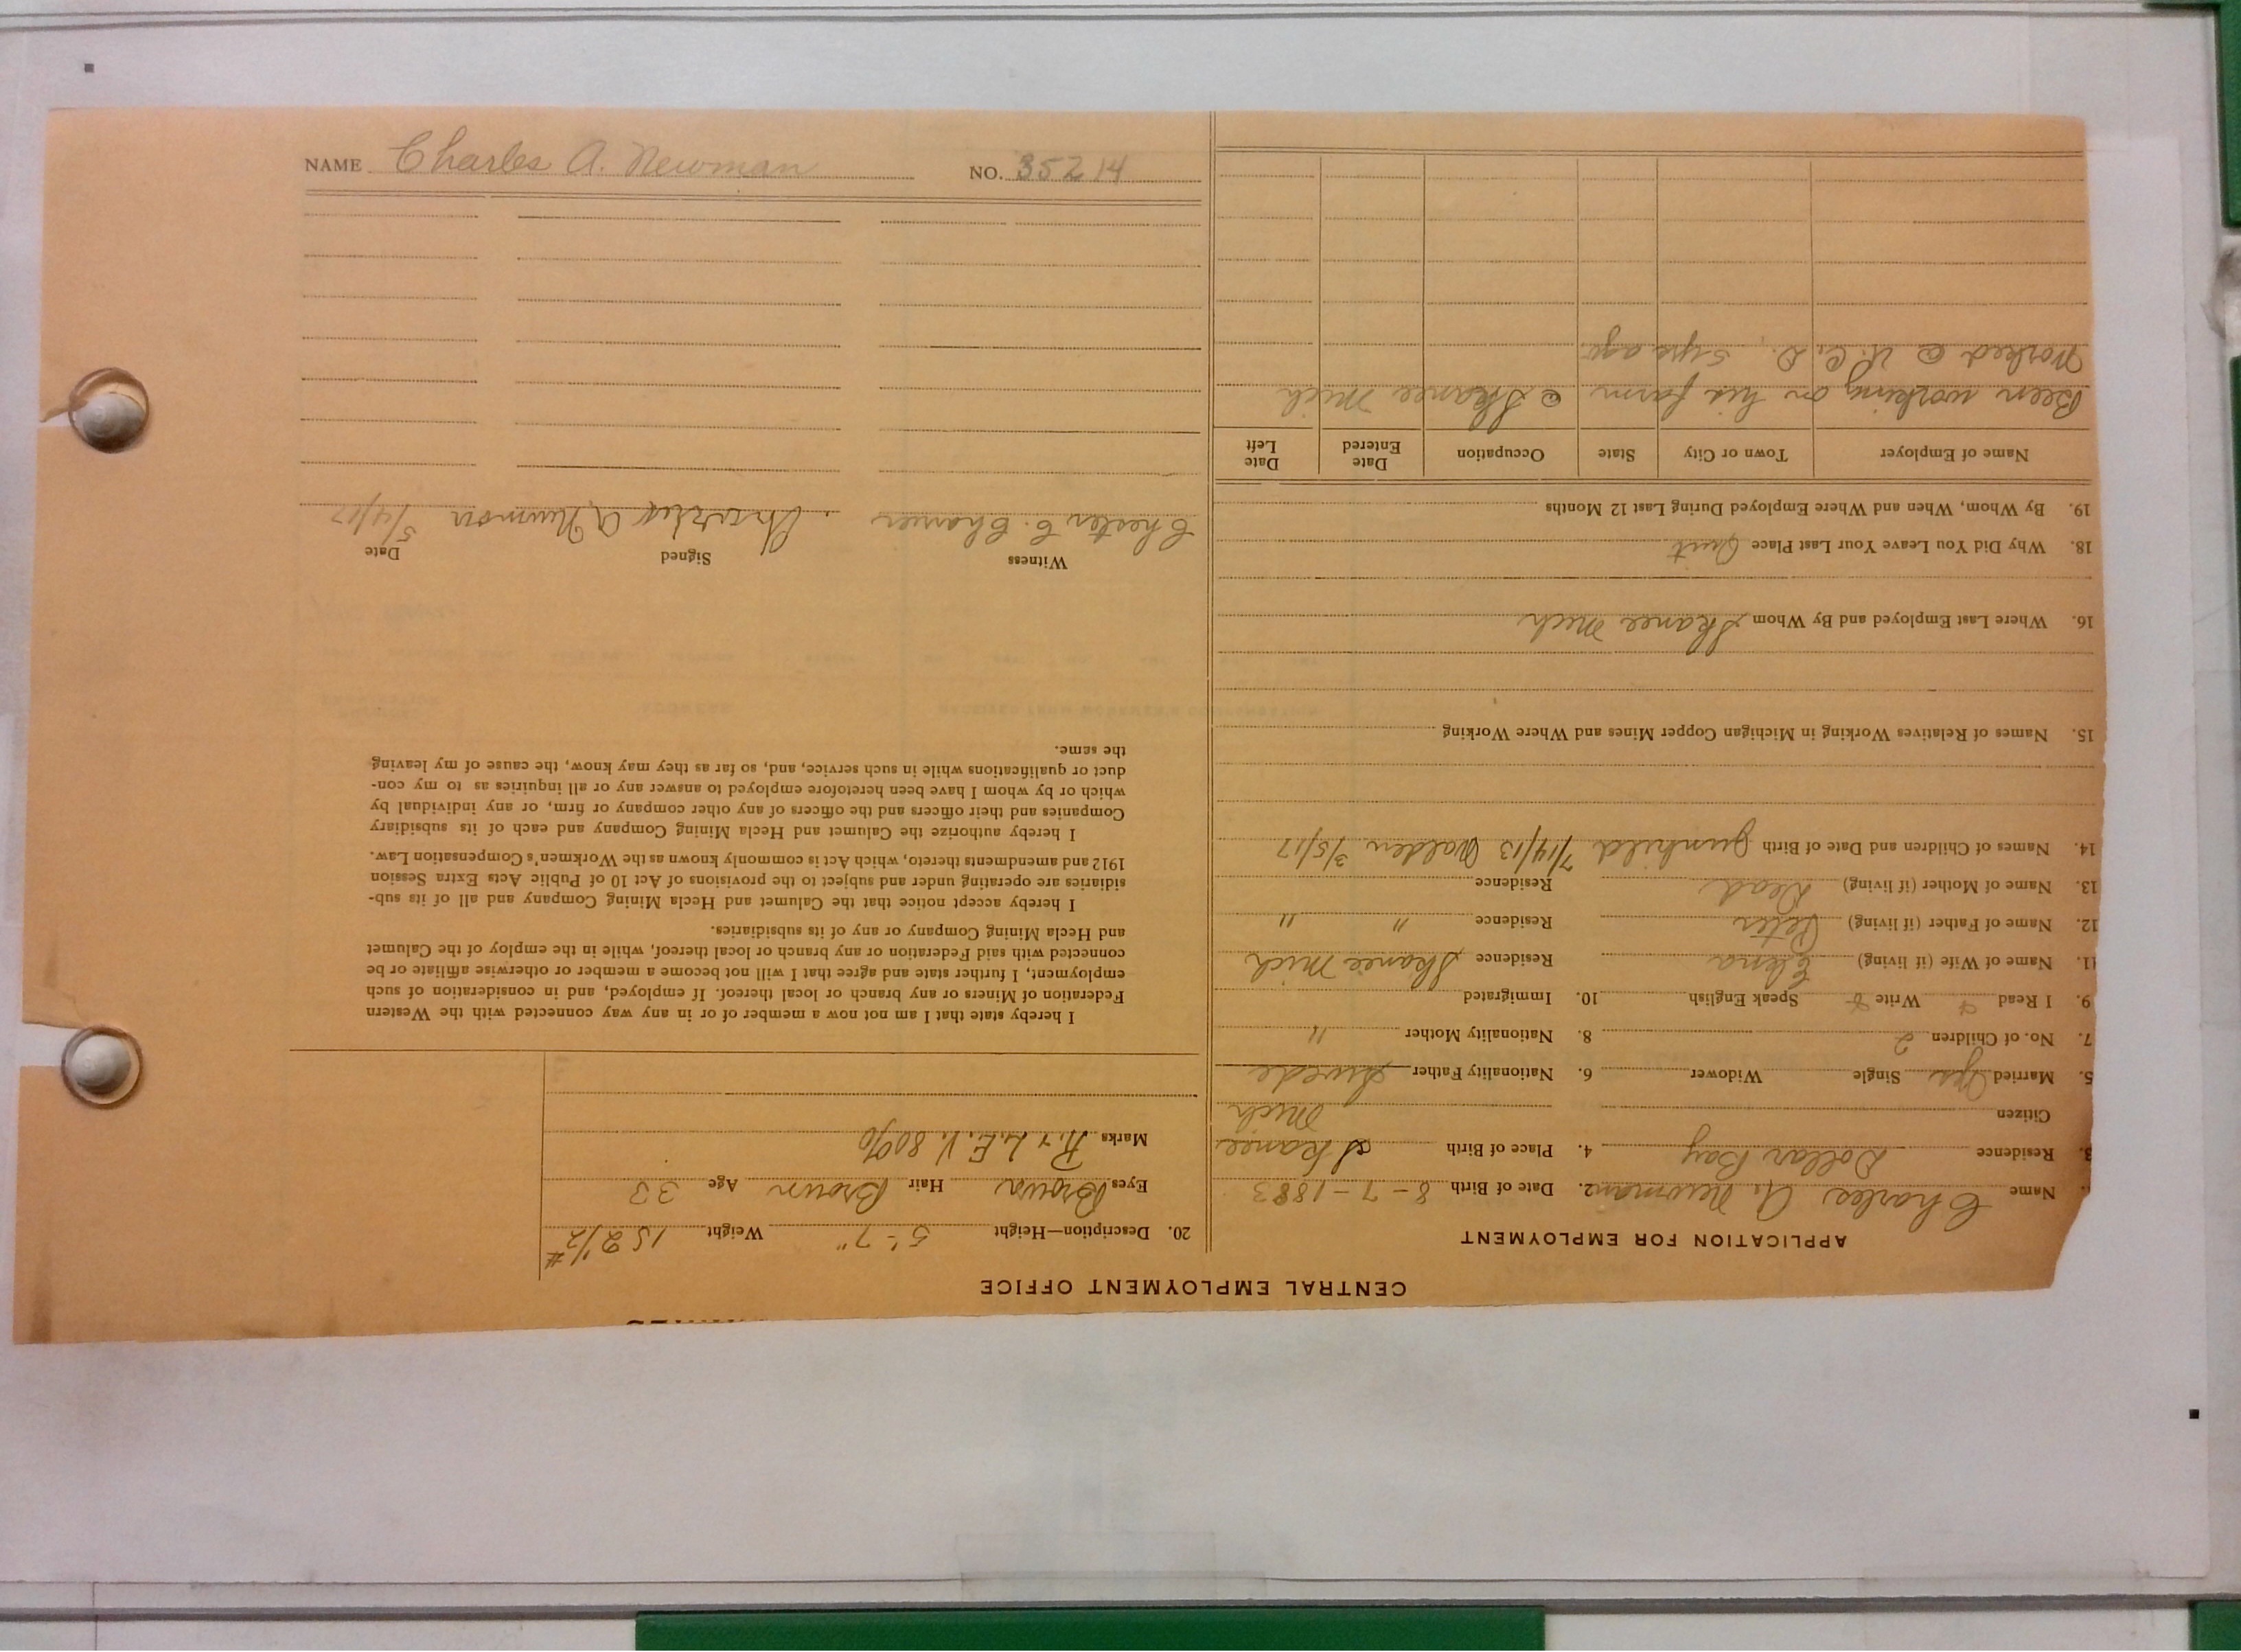 NAME Charles A. Newman NO. 35214
CENTRAL EMPLOYMENT OFFICE
APPLICATION FOR EMPLOYMENT
Name Charles A. Newman 2. Date of Birth 8-7-1883
3. Residence Dollar Bay 4. Place of Birth Skanee
Citizen Mich
5. Married Yes Single Widower 6. Nationality Father Swede
7. No. of Children 2 8. Nationality Mother "
9. I Read Write Speak English 10. Immigrated
11. Name of Wife (if living) Elena Residence Skanee Mich
12. Name of Father (if living) Peter Residence " "
13. Name of Mother (if living) Dead Residence
14. Names of Children and Date of Birth Gunhild 7/14/13 Walden 3/5/17
15. Names of Relatives Working in Michigan Copper Mines and Where Working
16. Where Last Employed and By Whom Skanee Mich
18. Why Did You Leave Your Last Place Quit
19. By Whom, When and Where Employed During Last 12 Months
Name of Employer Town or City State Occupation Date Entered Date Left
Been working on his farm @ Skanee Mich
Worked @ 5 yrs ago.
20. Description—Height 5'-7" Weight 152 1/2 #
Eyes Brown Hair Brown Age 33
Marks R. & L. E. V. 80%
I hereby state that I am not now a member of or in any way connected with the Western
Federation of Miners or any branch or local thereof. If employed, and in consideration of such
employment, I further state and agree that I will not become a member or otherwise affiliate or be
connected with said Federation or any branch or local thereof, while in the employ of the Calumet
and Hecla Mining Company or any of its subsidiaries.
I hereby accept notice that the Calumet and Hecla Mining Company and all of its sub-
sidiaries are operating under and subject to the provisions of Act 10 of Public Acts Extra Session
1912 and amendments thereto, which Act is commonly known as the Workmen's Compensation Law.
I hereby authorize the Calumet and Hecla Mining Company and each of its subsidiary
Companies and their officers and the officers of any other company or firm, or any individual by
which or by whom I have been heretofore employed to answer any or all inquiries as to my con-
duct or qualifications while in such service, and, so far as they may know, the cause of my leaving
the same.
Witness Signed Date
Chester C. Charles A Newman 5/4/17